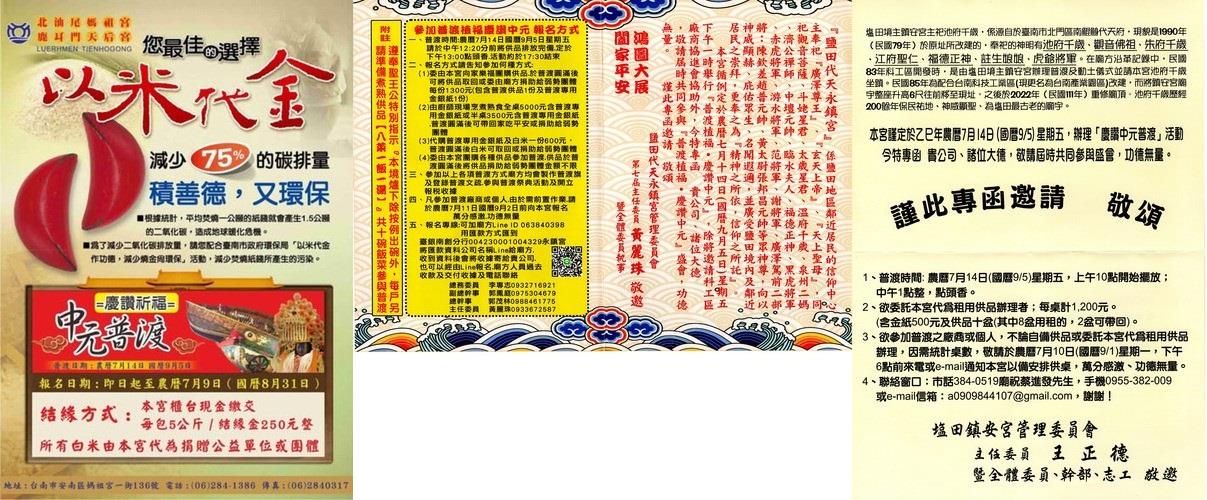 北汕尾媽祖宮
鹿耳門天后宮
LUERHMEN TIENHOGONG
您最佳的選擇
以米代金
減少75%的碳排量
積善德，又環保
■根據統計，平均焚燒一公噸的紙錢就會產生1.5公噸
的二氧化碳，造成地球暖化危機。
■為了減少二氧化碳排放量，請您配合臺南市政府環保局『以米代金
作功德，減少燒金尚環保』活動，減少焚燒紙錢所產生的污染。
慶讚祈福
中元普渡
普渡日期：農曆7月14日 國曆9月5日
報名日期：即日起至農曆7月9日（國曆8月31日）
結緣方式：
本宮櫃台現金繳交
每包5公斤/結緣金250元整
所有白米由本宮代為捐贈公益單位或團體
地址：台南市安南區媽祖宮一街136號 電話：(06)284-1386 傳真：(06)2840317
參加普渡植福慶讚中元 報名方式
一、普渡時間：農曆7月14日國曆9月5日星期五
請於中午12:20分前將供品排放完備,定於
下午13:00點頌香,活動約於17:30結束
二、報名方式請告知參加何種方式：
(1)委由本宮向家樂福團購供品,於普渡圓滿後
可將供品取回或委由廟方捐助給弱勢團體
每份1300元(包含普渡供品1份及普渡專用
金銀紙1份)
(2)由廚師現場烹煮熟食全桌5000元含普渡專
用金銀紙或半桌3500元含普渡專用金銀紙
,普渡圓滿後可帶回家吃平安或捐助給弱勢
團體
(3)代購普渡專用金銀紙及白米一份600元，
普渡圓滿後白米可取回或捐助給弱勢團體
(4)委由本宮團購各種供品參加普渡,供品於普
渡圓滿後將供品捐助給弱勢團體金額不限
三、參加以上各項普渡方式廟方均會製作普渡旗
及登錄普渡文疏,參與普渡祭典活動及開立
報稅收據
四、凡參加普渡廠商或個人,由於需前置作業,請
於農曆7月11日國曆9月2日前向本宮報名
萬分感激,功德無量
五、報名專線:可加廟方Line ID 063840398
用匯款方式匯到
臺銀南創分行004230001004329永鎮宮
將匯款資料公司名稱Line給廟方,
收到資料後會將收據寄給貴公司,
也可以經由Line報名,廟方人員過去
收款及交付收據及電話聯絡
總務委員 李專志0932716921
副總幹事 郭鳳龍0975304679
總幹事 郭茂林0988461775
主任委員 黃麗珠0933672587
附註
遵奉聖王公特別指示『本境爐下除按例出碗外，每戶另
請準備煮熟供品【八菜一飯一湯】。共十碗飯菜參與普渡
『鹽田代天永鎮宮』係鹽地區鄰近居民的信仰中心
主奉祀『廣澤尊王』、『玄天上帝』、『天上聖母』，同
祀觀音菩薩、佬星君、太歲星君、溫府千歲、泉州二媽
、濟公禪師、中壇元帥、臨水夫人、福德正神、黑虎將軍
、赤虎將軍、游水將軍、范將軍、謝將軍、廣澤駕前二部
將、陳欽差趙普元帥、黃太尉張邦昌元帥等眾神尊，向以
神威顯赫、庇佑眾生、名聞遐邇，並廣受鹽田境內及鄰近
居民之崇拜，更奉之為『精神之所依，信仰之所託』。
本宮循例定於農曆七月十四日(國曆九月五日)星期五
下午一時舉行『普渡植福·慶讚中元』，除將邀請科工區
廠商協進會協助外，今特專函 貴公司、諸位大德
，敬請屆時共同參與『普渡植福·慶讚中元』盛會，功德
無量。 謹此專函邀請 敬頌
鴻圖大展
闔家平安
鹽田代天永鎮宮管理委員會
第七屆主任委員 黃麗珠 敬邀
暨全體委員執事
鹽田境主鎮安宮主祀池府千歲，係源自於臺南市北門區南鯤鯓代天府，現貌是1990年
（民國79年）於原址所改建的，奉祀的神明有池府千歲、觀音佛祖、朱府千歲
、江府聖仁、福德正神、註生娘娘、虎爺將軍。在廟方沿革記錄中，民國
83年科工區開發時，是由鹽田境主鎮安宮辦理普渡及動土儀式並請本宮池府千歲
坐鎮。民國85年為配合台南科技工業區(現更名為台南產業園區)改建，而將鎮安宮廟
宇整座升高6尺往前移至現址，之後於2022年(民國111年)重修廟頂。池府千歲歷經
200餘年保民祐地、神威顯聖、為鹽田最古老的廟宇。
本宮謹定於乙巳年農曆7月14日(國曆9/5)星期五，辦理「慶讚中元普渡」活動
今特專函 貴公司、諸位大德，敬請屆時共同參與盛會，功德無量。
謹此專函邀請 敬頌
1、普渡時間：農曆7月14日(國曆9/5)星期五，上午10點開始擺放；
中午1點整，點頭香。
2、欲委託本宮代為租用供品辦理者；每桌計1,200元。
(含金紙500元及供品十盆(其中8盆用租的，2盆可帶回)。
3、欲參加普渡之廠商或個人，不論自備供品或委託本宮代為租用供品
辦理，因需統計桌數，敬請於農曆7月10日(國曆9/1)星期一，下午
6點前來電或e-mail通知本宮以備安排供桌，萬分感激、功德無量。
4、聯絡窗口：市話384-0519廟祝蔡進發先生，手機0955-382-009
或e-mail信箱：a0909844107@gmail.com，謝謝！
鹽田鎮安宮管理委員會
主任委員 王正德
暨全體委員、幹部、志工 敬邀